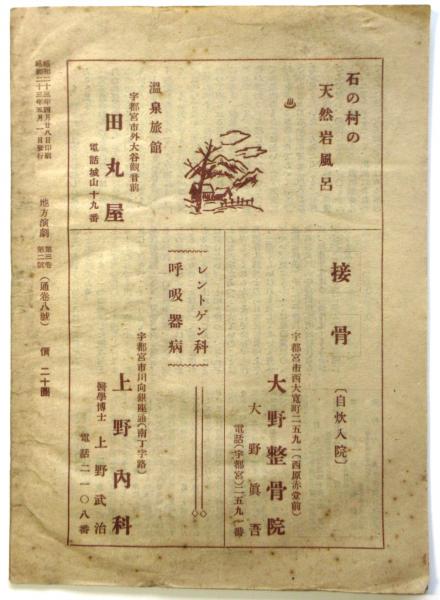 石の村の
天然岩風呂
♨
溫泉旅館
宇都宮市外大谷觀音前
田丸屋
電話城山十九番
接骨
〔自炊入院〕
宇都宮市西大寛町二五九一(西原赤堂前)
大野整骨院
大野眞吾
電話(宇都宮)二五九一番
レントゲン科
呼吸器病
宇都宮市川向銀座通(南丁字路)
上野內科
醫學博士 上野武治
電話二一〇八番
昭和二十三年四月廿八日印刷
昭和二十三年五月一日發行
地方演劇 第三卷 第二號 (通卷八號) 價二十圓